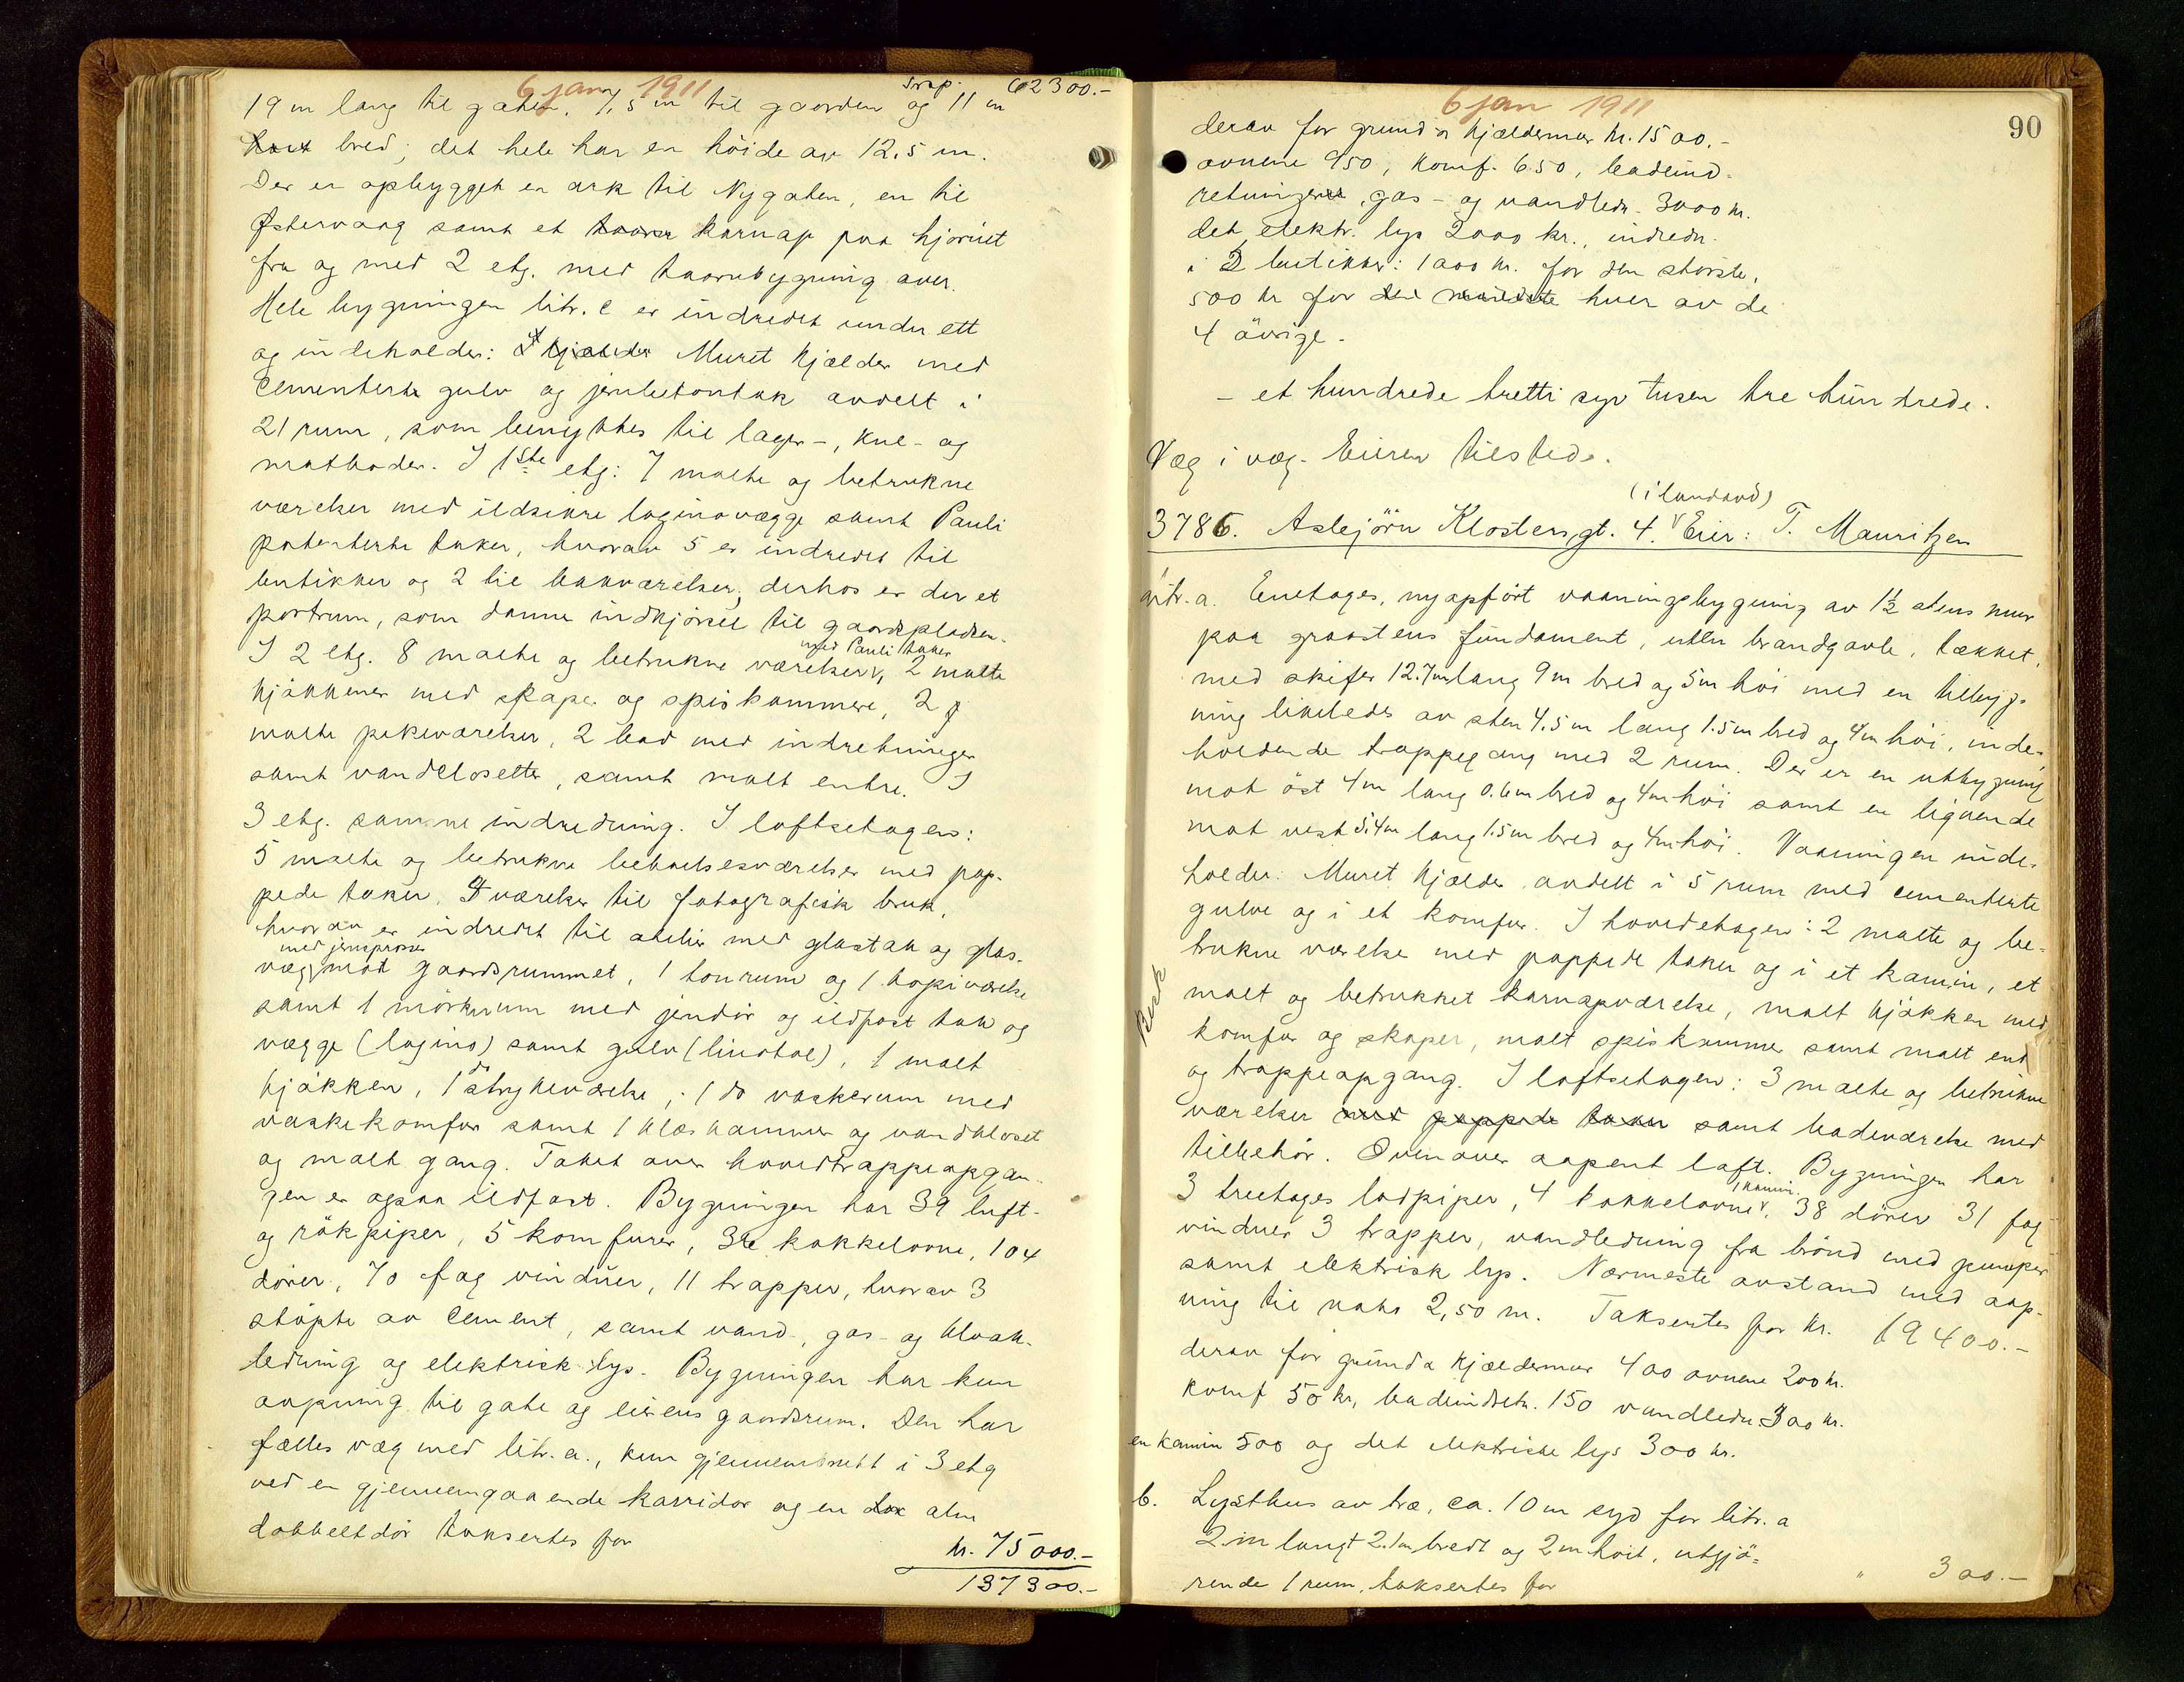 6 jan 1911
Trsp. 62300.-
19 m lang til gaten, 7,5 m til gaarden og 11 m
bred; det hele har en höide av 12,5 m.
Der er opbygget en ark til Nygaten, en til
Østervaag samt et karnap paa hjörnet
fra og med 2 etg. med taarnbygning over.
Hele bygningen litr. c er indredet under ett
og indeholder: Muret kjælder med
cementerte gulv og jernbetontak avdelt i
21 rum, som benyttes til lager-, kul- og
matboder. I 1ste etg: 7 malte og betrukne
værelser med ildsikre loginovægge samt Pauli
patenterte taker, hvorav 5 er indredet til
butikker og 2 til bakværelser, derhos er der et
portrum, som danne indkjörsel til gaardspladsen.
I 2 etg. 8 malte og betrukne værelser med Pauli taker, 2 malte
kjökkener med skaper og spiskammere, 2
malte pikeværelser, 2 bad med indretninger
samt vandclosetter, samt malt entre. I
3 etg. samme indredning. I loftsetagen:
5 malte og betrukne beboelsesværelser med pap-
pede taker, 4 værelser til fotografisk bruk,
hvorav er indredet til atelier med glastak og glas-
væg med jernsprosser mot gaardsrummet, 1 tonrum og 1 kopiværelse
samt 1 mörkrum med jerndör og ildfast tak og
vægge (logino) samt gulv (linotol), 1 malt
kjökken, 1 do strykeværelse, 1 do vaskerum med
vaskekomfur samt 1 klæskammer og vandkloset
og malt gang. Taket over hovedtrappeopgan-
gen er ogsaa ildfast. Bygningen har 39 luft-
og rökpiper, 5 komfurer, 32 kakkelovne, 104
dörer, 70 fag vinduer, 11 trapper, hvorav 3
stöpte av cement, samt vand-, gas- og kloak-
ledning og elektrisk lys. Bygningen har kun
aapning til gate og eierens gaardsrum. Den har
fælles væg med litr. a., kun gjennembrutt i 3 etg
ved en gjennemgaaende korridor og en alm
dobbeltdör takseres for
kr. 75000.-
137300.-
90
6 jan 1911
derav for grund & kjældermur kr. 1500.-
ovnene 950, komf. 650, badeind-
retninger, gas- og vandledn. 3000 kr.
det elektr. lys 2000 kr., indredn.
i butikker: 1000 kr. for den störste,
500 kr for hver av de
4 övrige.
- et hundrede tretti syv tusen tre hundrede.
Væg i væg. Eieren tilstede.
(i landavd)
3786. Asbjörn Klostersgt. 4. Eier: T. Mauritzen
litr. a. Enetages, nyopfört vaaningsbygning av 1½ stens mur
paa graastens fundament, uten brandgavle, tækket
med skifer 12.7 m lang 9 m bred og 5 m höi med en tilbyg-
ning likeledes av sten 4,5 m lang 1.5 m bred og 4 m höi, inde-
holdende trappegang med 2 rum. Der er en utbygning
mot öst 4 m lang 0.6 m bred og 4 m höi samt en lignende
mot vest 5.4 m lang 1.5 m bred og 4 m höi. Vaaningen inde-
holder: Muret kjælder avdelt i 5 rum med cementerte
gulve og i et komfur. I hovedetagen: 2 malte og be-
trukne værelse med pappede taker og i et kamin, et
malt og betrukket karnapværelse, malt kjökken med
komfur og skaper, malt spiskammer samt malt entré
og trappeopgang. I loftsetagen: 3 malte og betrukne
værelser med pappede taker samt badeværelse med
tilbehör. Ovenover aapent loft. Bygningen har
3 treetages lodpiper, 4 kakkelovne, 1 kamin, 38 dörer 31 fag
vinduer 3 trapper, vandledning fra brönd med pumper
samt elektrisk lys. Nærmeste avstand med aap-
ning til nabo 2,50 m. Takseres for kr. 19400.-
derav for grund & kjældermur 400 ovnene 200 kr.
komf 50 kr, badeindretn. 150 vandledn. 300 kr.
en kamin 500 og det elektriske lys 300 kr.
b. Lysthus av træ, ca. 10 m syd for litr. a
2 m langt 2.1 m bredt og 2 m höit, utgjö-
rende 1 rum, takseres for " 300.-